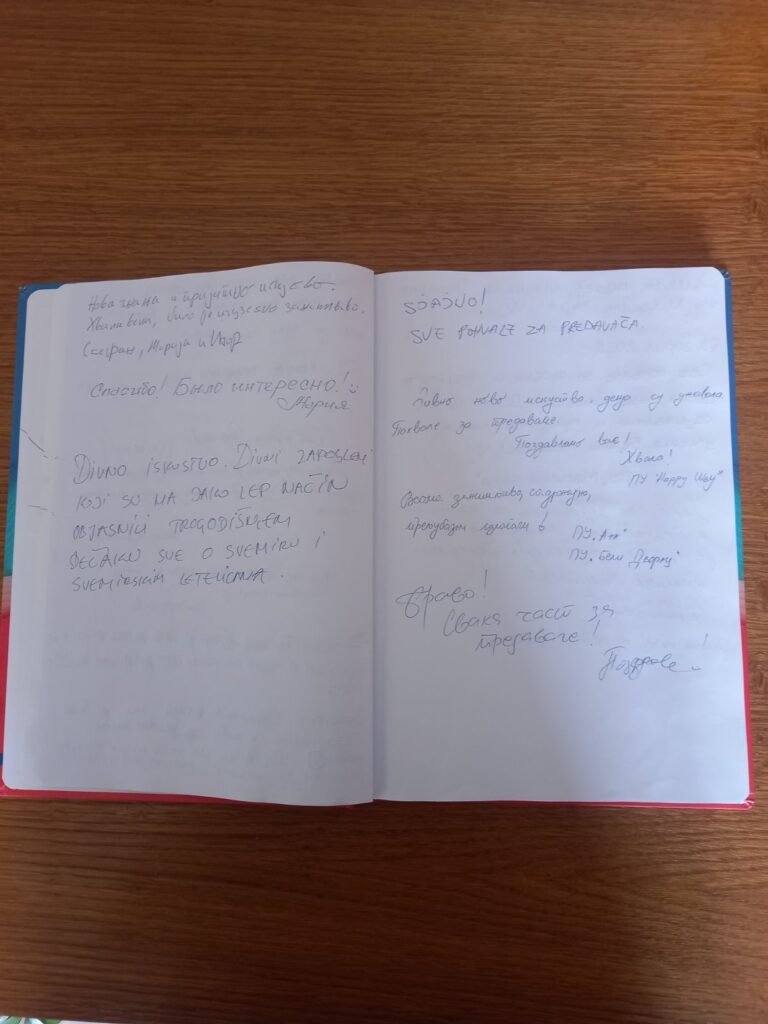 Нова знања и пријатно искуство.
Хвала вам, било је изузетно занимљиво.
Стефан, Марија и
Спасибо! Было интересно! :)
Мария
DIVNO ISKUSTVO. DIVNI ZAPOSLENI
KOJI SU NA JAKO LEP NAČIN
OBJASNILI TROGODIŠNJEM
DEČAKU SVE O SVEMIRU I
SVEMIRSKIM LETELICAMA.
SJAJNO!
SVE POHVALE ZA PREDAVAČA.
Дивно ново искуство, деца су уживала
Похвале за предаваче.
Поздрављамо вас!
Хвала!
ПУ "Happy Way"
Веома занимљиво, садржајно,
ПУ „
ПУ „Бели Дворац"
Браво!
Свака част за
предаваче!
Поздрав